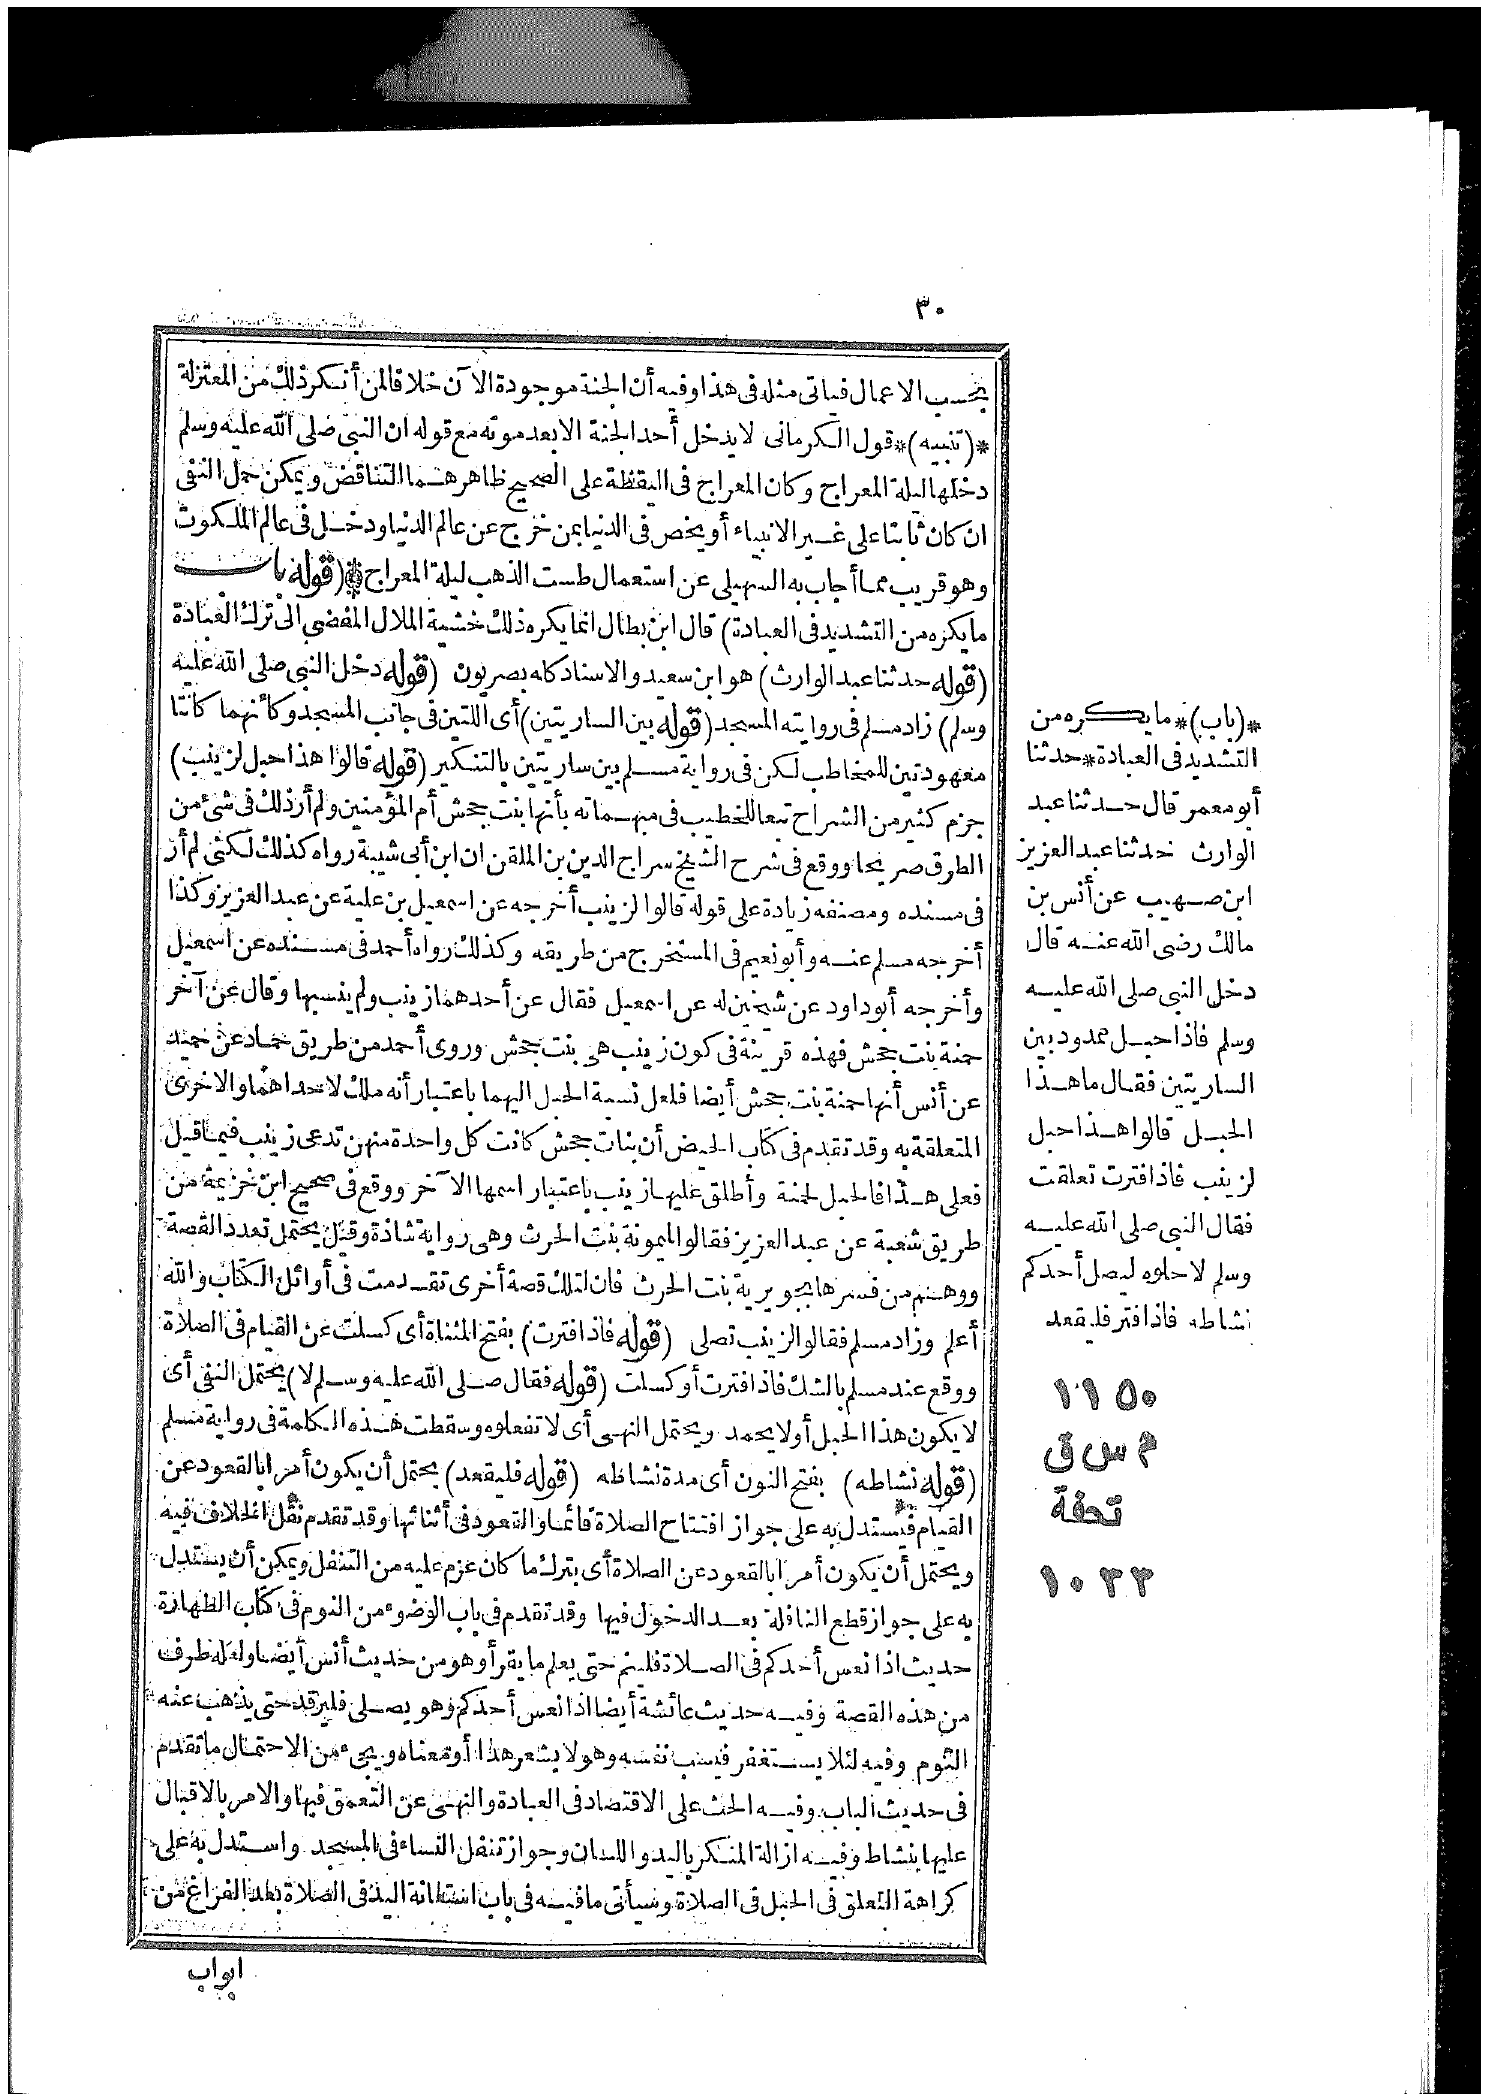 ٣٠
بحسب الاعمال فياتى مثله فى هذا وفيه أن الجنة موجودة الآن خلافا لمن أنكر ذلك من المعتزلة
*(تنبيه)* قول الكرمانى لا يدخل أحد الجنة الا بعد موته مع قوله ان النبى صلى الله عليه وسلم
دخلها ليلة المعراج وكان المعراج فى اليقظة على الصحيح ظاهرهما التناقض ويمكن حمل النفى
ان كان ثابتا على غير الانبياء أو يخص فى الدنيا بمن خرج عن عالم الدنيا ودخل فى عالم الملكوت
وهو قريب مما أجاب به السهيلى عن استعمال طست الذهب ليلة المعراج * (قوله باب
ما يكره من التشديد فى العبادة) قال ابن بطال انما يكره ذلك خشية الملال المفضى الى ترك العبادة
(قوله حدثنا عبد الوارث) هو ابن سعيد والاسناد كله بصريون (قوله دخل النبى صلى الله عليه
وسلم) زاد مسلم فى روايته المسجد (قوله بين الساريتين) أى اللتين فى جانب المسجد وكأنهما كانتا
معهودتين للمخاطب لكن فى رواية مسلم بين ساريتين بالتنكير (قوله قالوا هذا حبل لزينب)
جزم كثير من الشراح تبعا للخطيب فى مبهماته بأنها بنت جحش أم المؤمنين ولم أر ذلك فى شئ من
الطرق صريحا ووقع فى شرح الشيخ سراج الدين بن الملقن ان ابن أبى شيبة رواه كذلك لكنى لم أر
فى مسنده ومصنفه زيادة على قوله قالوا لزينب أخرجه عن اسمعيل بن علية عن عبد العزيز وكذا
أخرجه مسلم عنه وأبو نعيم فى المستخرج من طريقه وكذلك رواه أحمد فى مسنده عن اسمعيل
وأخرجه أبو داود عن شيخين له عن اسمعيل فقال عن أحدهما زينب ولم ينسبها وقال عن آخر
حمنة بنت جحش فهذه قرينة فى كون زينب هى بنت جحش وروى أحمد من طريق حماد عن حميد
عن أنس أنها حمنة بنت جحش أيضا فلعل نسبة الحبل اليهما باعتبار أنه ملك لاحداهما والاخرى
المتعلقة به وقد تقدم فى كتاب الحيض أن بنات جحش كانت كل واحدة منهن تدعى زينب فيما قيل
فعلى هذا فالحبل لحمنة وأطلق عليها زينب باعتبار اسمها الآخر ووقع فى صحيح ابن خزيمة من
طريق شعبة عن عبد العزيز فقالوا لميمونة بنت الحرث وهى رواية شاذة وقيل يحتمل تعدد القصة
ووهم من فسرها بجويرية بنت الحرث فان لتلك قصة أخرى تقدمت فى أوائل الكتاب والله
أعلم وزاد مسلم فقالوا لزينب تصلى (قوله فاذا فترت) بفتح المثناة أى كسلت عن القيام فى الصلاة
ووقع عند مسلم بالشك فاذا فترت أو كسلت (قوله فقال صلى الله عليه وسلم لا) يحتمل النفى أى
لا يكون هذا الحبل أو لا يحمد ويحتمل النهى أى لا تفعلوه وسقطت هذه الكلمة فى رواية مسلم
(قوله نشاطه) بفتح النون أى مدة نشاطه (قوله فليقعد) يحتمل أن يكون أمرا بالقعود عن
القيام فيستدل به على جواز افتتاح الصلاة قائما والقعود فى أثنائها وقد تقدم نقل الخلاف فيه
ويحتمل أن يكون أمرا بالقعود عن الصلاة أى بترك ما كان عزم عليه من التنفل ويمكن أن يستدل
به على جواز قطع النافلة بعد الدخول فيها وقد تقدم فى باب الوضوء من النوم فى كتاب الطهارة
حديث اذا نعس أحدكم فى الصلاة فلينم حتى يعلم ما يقرأ وهو من حديث أنس أيضا ولعله طرف
من هذه القصة وفيه حديث عائشة أيضا اذا نعس أحدكم وهو يصلى فليرقد حتى يذهب عنه
النوم وفيه لئلا يستغفر فيسب نفسه وهو لا يشعر هذا أو معناه ويجىء من الاحتمال ما تقدم
فى حديث الباب وفيه الحث على الاقتصاد فى العبادة والنهى عن التعمق فيها والامر بالاقبال
عليها بنشاط وفيه ازالة المنكر باليد واللسان وجواز تنفل النساء فى المسجد واستدل به على
كراهة التعلق فى الحبل فى الصلاة وسيأتى ما فيه فى باب استعانة اليد فى الصلاة بعد الفراغ من
ابواب
*(باب)* ما يكره من
التشديد فى العبادة * حدثنا
أبو معمر قال حدثنا عبد
الوارث حدثنا عبد العزيز
ابن صهيب عن أنس بن
مالك رضى الله عنه قال
دخل النبى صلى الله عليه
وسلم فاذا حبل ممدود بين
الساريتين فقال ما هذا
الحبل قالوا هذا حبل
لزينب فاذا فترت تعلقت
فقال النبى صلى الله عليه
وسلم لا حلوه ليصل أحدكم
نشاطه فاذا فتر فليقعد
١١٥٠
م س ق
تحفة
١٠٣٣